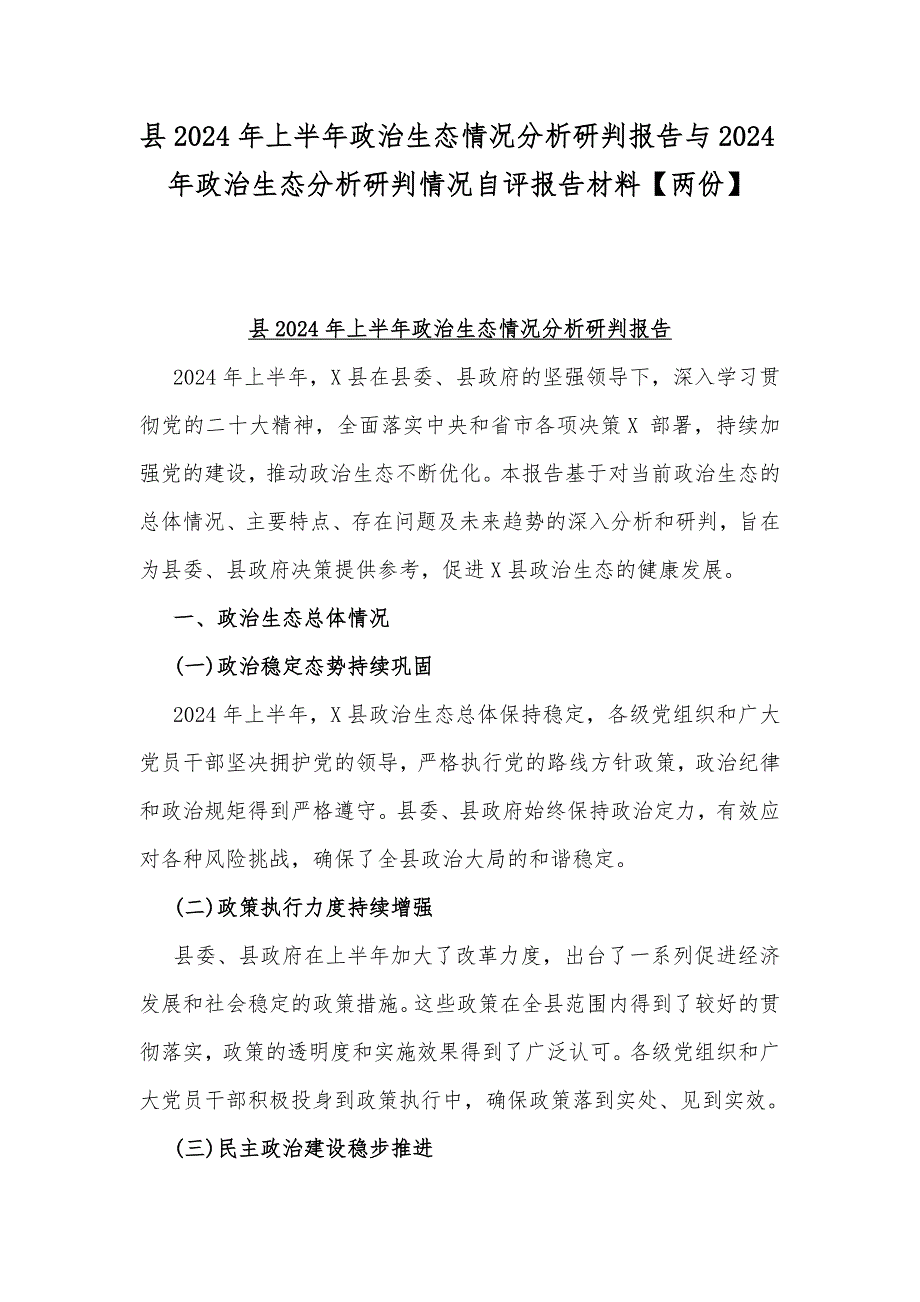 县2024年上半年政治生态情况分析研判报告与2024
年政治生态分析研判情况自评报告材料【两份】
县2024年上半年政治生态情况分析研判报告
2024年上半年，X县在县委、县政府的坚强领导下，深入学习贯
彻党的二十大精神，全面落实中央和省市各项决策X 部署，持续加
强党的建设，推动政治生态不断优化。本报告基于对当前政治生态的
总体情况、主要特点、存在问题及未来趋势的深入分析和研判，旨在
为县委、县政府决策提供参考，促进X县政治生态的健康发展。
一、政治生态总体情况
(一)政治稳定态势持续巩固
2024年上半年，X县政治生态总体保持稳定，各级党组织和广大
党员干部坚决拥护党的领导，严格执行党的路线方针政策，政治纪律
和政治规矩得到严格遵守。县委、县政府始终保持政治定力，有效应
对各种风险挑战，确保了全县政治大局的和谐稳定。
(二)政策执行力度持续增强
县委、县政府在上半年加大了改革力度，出台了一系列促进经济
发展和社会稳定的政策措施。这些政策在全县范围内得到了较好的贯
彻落实，政策的透明度和实施效果得到了广泛认可。各级党组织和广
大党员干部积极投身到政策执行中，确保政策落到实处、见到实效。
(三)民主政治建设稳步推进